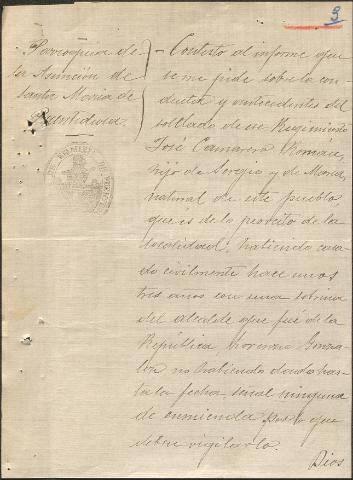 3
Parroquia de
la Asunción de
Santa María de
Fuentidueña.
- Contesto al informe que
se me pide sobre la con
ducta y antecedentes del
soldado de ese Regimiento
José Camarero Román,
hijo de Sergio y de María,
natural de este pueblo
que es de lo peorcito de la
localidad, habiendo casa
do civilmente hace unos
tres años con una sobrina
del alcalde que fué de la
República, Lorenzo Gonza
lez no habiendo dado has
ta la fecha señal ninguna
de enmienda por lo que
debe vigilarlo.
Dios